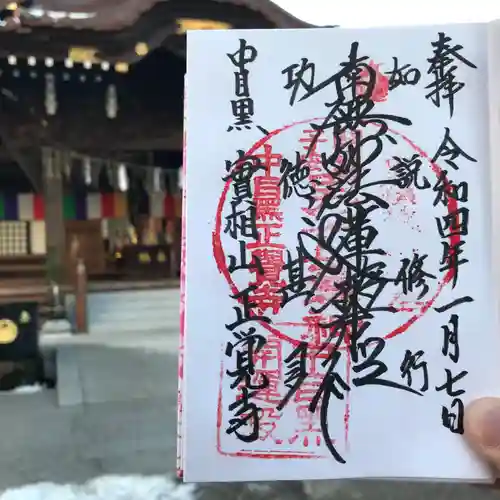 奉拝 令和四年一月七日
如説修行
南無妙法蓮華経
功徳甚多
中目黒 實相山 正覚寺